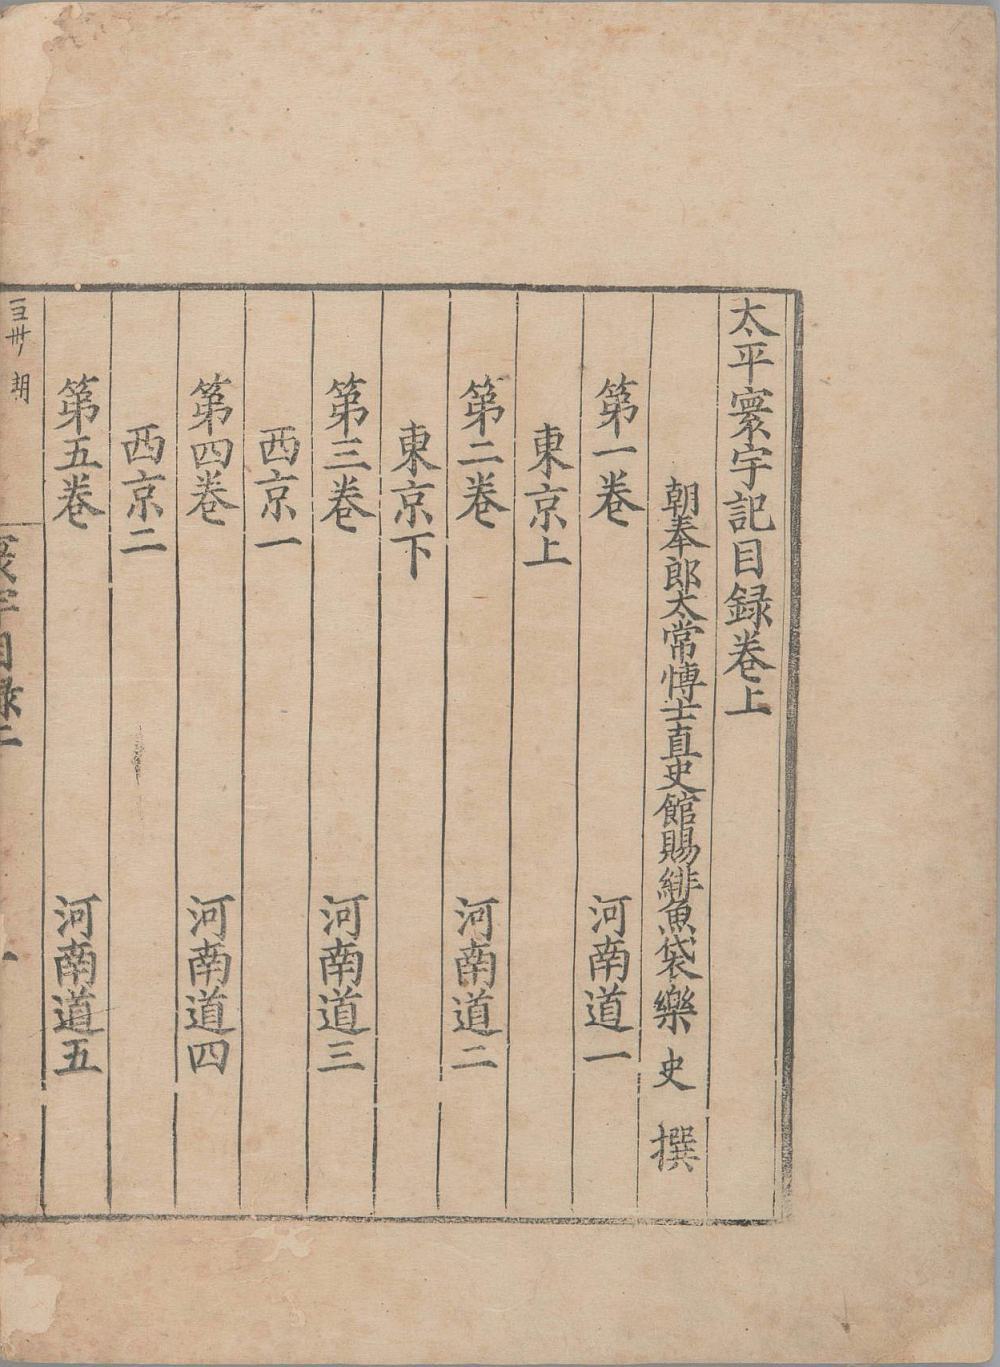 太平寰宇記目録卷上
朝奉郎太常博士直史館賜緋魚袋樂史撰
第一卷 河南道一
東京上
第二卷 河南道二
東京下
第三卷 河南道三
西京一
第四卷 河南道四
西京二
第五卷 河南道五
寰宇目録二